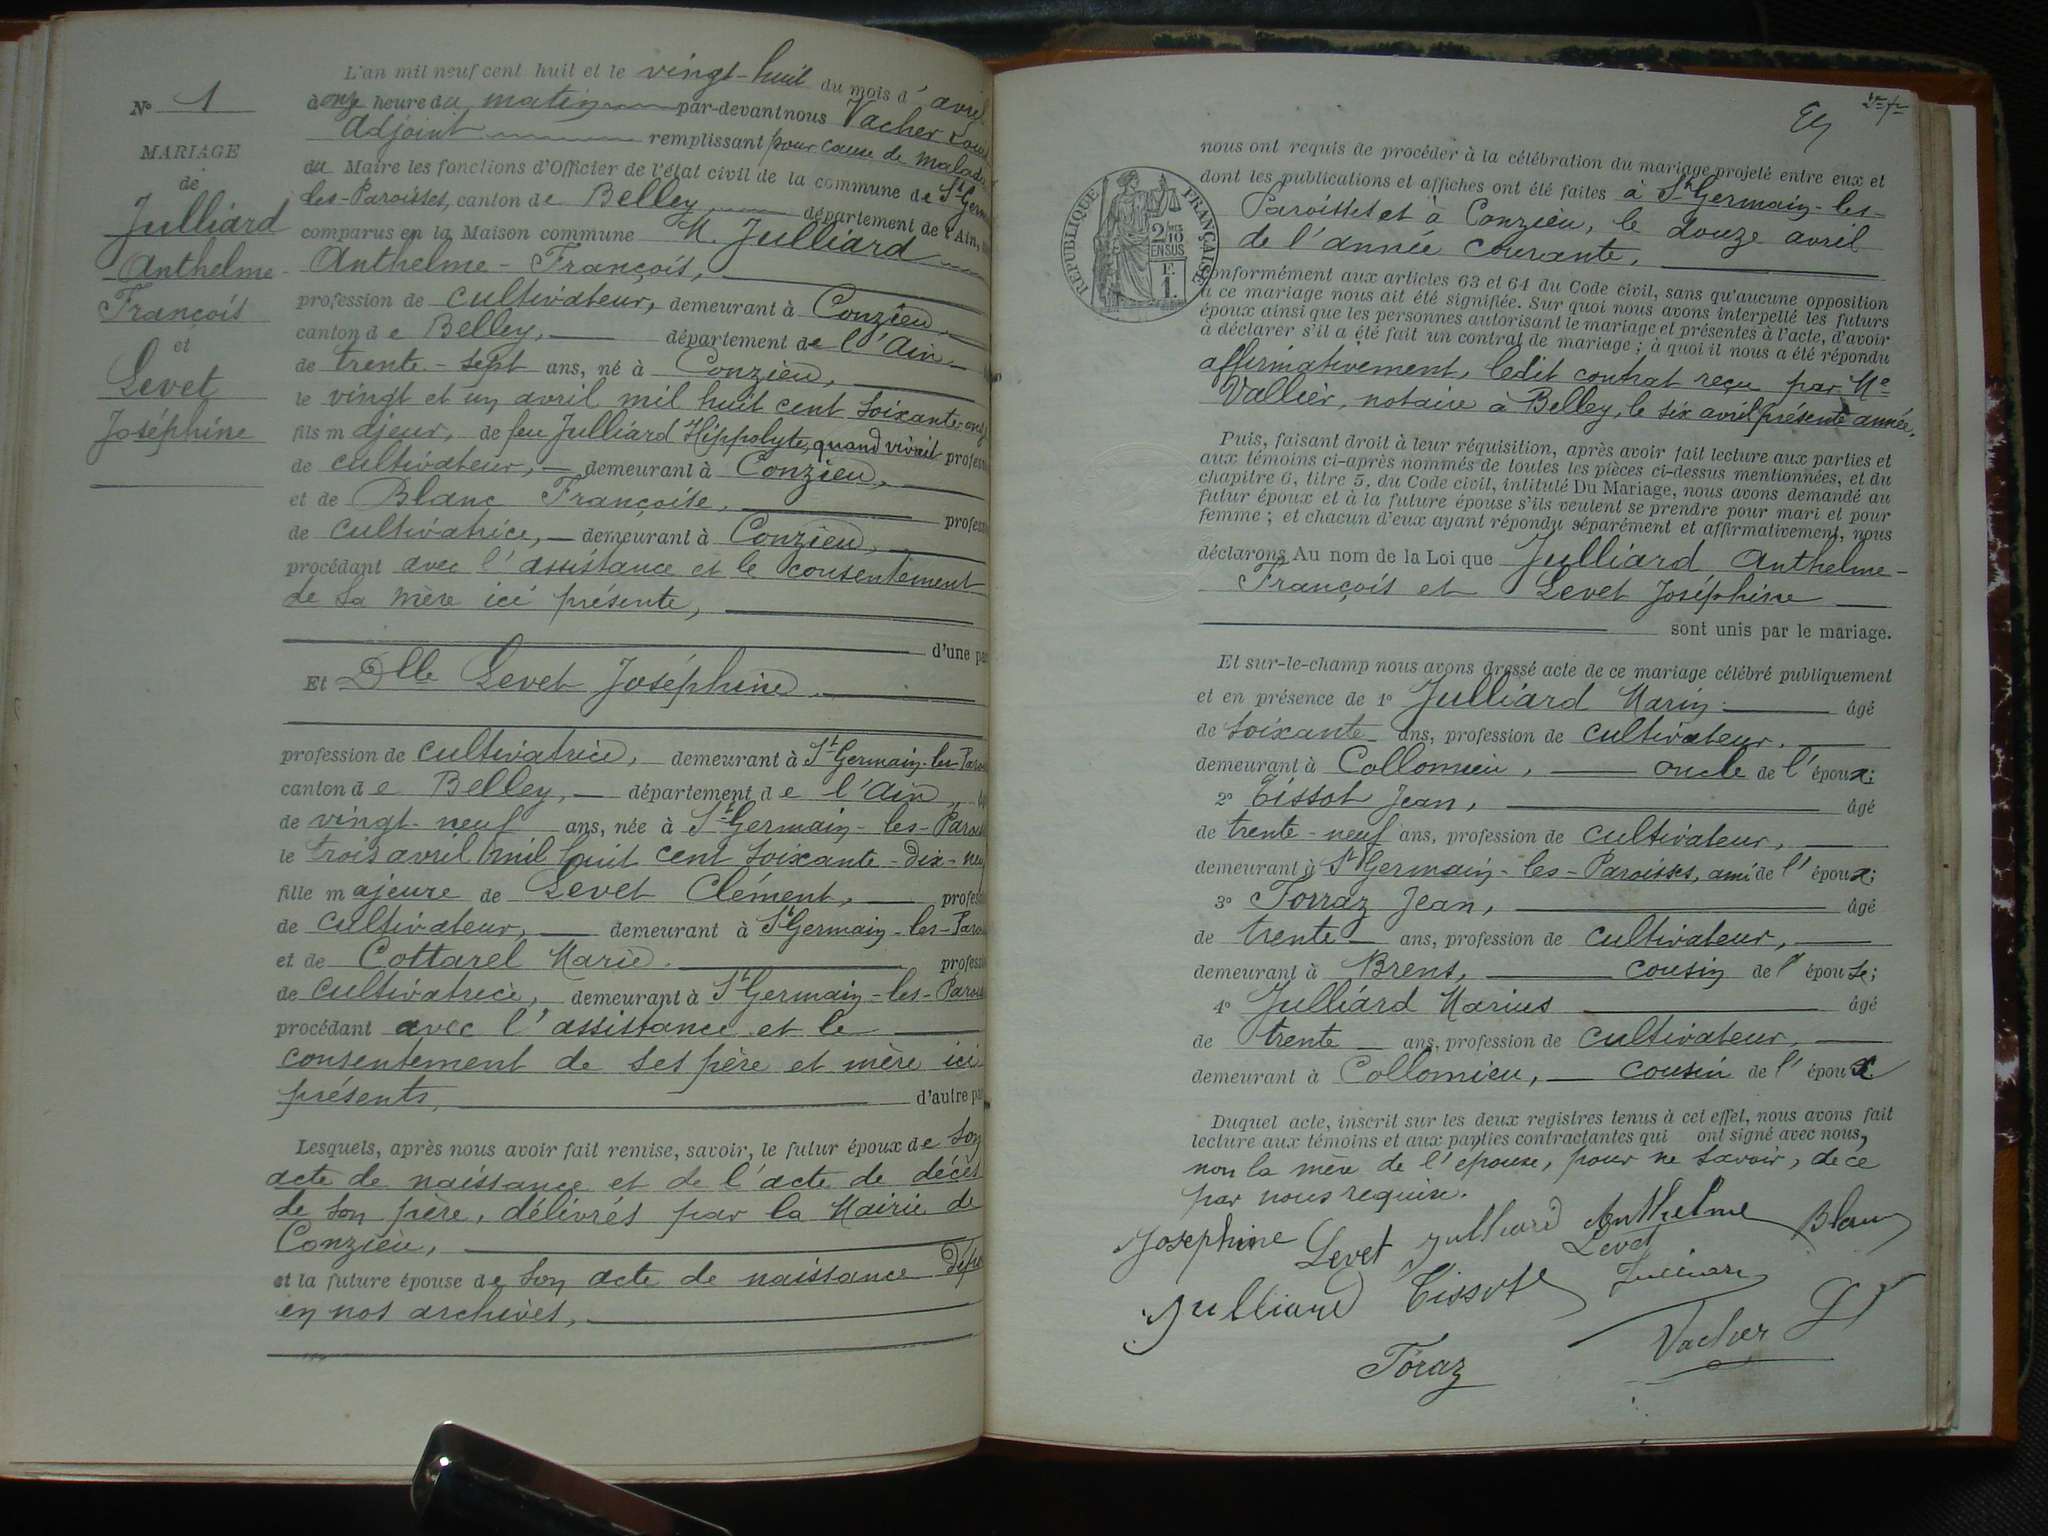 N° 1
MARIAGE
de
Julliard
Anthelme-
François
et
Levet
Joséphine
L'an mil neuf cent huit et le vingt-huit du mois d'avril
à onze heure du matin par-devant nous Vacher Louis
Adjoint remplissant pour cause de maladie
du Maire les fonctions d'Officier de l'état civil de la commune de St Germ
les-Paroisses, canton de Belley, département de l'Ain,
comparus en la Maison commune M. Julliard
Anthelme-François,
profession de cultivateur, demeurant à Conzieu,
canton de Belley, département de l'Ain,
de trente-sept ans, né à Conzieu,
le vingt et un avril mil huit cent soixante-onz
fils majeur, de feu Julliard Hippolyte, quand vivait profess
de cultivateur, demeurant à Conzieu,
et de Blanc Françoise, profess
de cultivatrice, demeurant à Conzieu,
procédant avec l'assistance et le consentement
de sa mère ici présente,
d'une pa
Et Dlle Levet Joséphine,
profession de cultivatrice, demeurant à St Germain-les-Paro
canton de Belley, département de l'Ain,
de vingt-neuf ans, née à St Germain-les-Parois
le trois avril mil huit cent soixante-dix-neu
fille majeure de Levet Clément, profess
de cultivateur, demeurant à St Germain-les-Paro
et de Cottarel Marie. profess
de cultivatrice, demeurant à St Germain-les-Parois
procédant avec l'assistance et le
consentement de ses père et mère ici
présents, d'autre pa
Lesquels, après nous avoir fait remise, savoir, le futur époux de son
acte de naissance et de l'acte de décès
de son père, délivrés par la Mairie de
Conzieu,
et la future épouse de son acte de naissance dépo
en nos archives,
REPUBLIQUE FRANÇAISE
2/10 EN SUS
F. 1.
nous ont requis de procéder à la célébration du mariage projeté entre eux et
dont les publications et affiches ont été faites à St Germain-les-
Paroisses et à Conzieu, le douze avril
de l'année courante,
conformément aux articles 63 et 64 du Code civil, sans qu'aucune opposition
à ce mariage nous ait été signifiée. Sur quoi nous avons interpellé les futurs
époux ainsi que les personnes autorisant le mariage et présentes à l'acte, d'avoir
à déclarer s'il a été fait un contrat de mariage ; à quoi il nous a été répondu
affirmativement, ledit contrat reçu par Me
Vallier, notaire à Belley, le six avril présente année.
Puis, faisant droit à leur réquisition, après avoir fait lecture aux parties et
aux témoins ci-après nommés de toutes les pièces ci-dessus mentionnées, et du
chapitre 6, titre 5, du Code civil, intitulé Du Mariage, nous avons demandé au
futur époux et à la future épouse s'ils veulent se prendre pour mari et pour
femme ; et chacun d'eux ayant répondu séparément et affirmativement, nous
déclarons Au nom de la Loi que Julliard Anthelme-
François et Levet Joséphine
sont unis par le mariage.
Et sur-le-champ nous avons dressé acte de ce mariage célébré publiquement
et en présence de 1° Julliard Marin âgé
de soixante ans, profession de cultivateur,
demeurant à Collomieu, oncle de l'époux;
2° Tissot Jean, âgé
de trente-neuf ans, profession de cultivateur,
demeurant à St Germain-les-Paroisses, ami de l'époux;
3° Torraz Jean, âgé
de trente ans, profession de cultivateur,
demeurant à Brens, cousin de l'épouse;
4° Julliard Marius âgé
de trente ans, profession de cultivateur,
demeurant à Collomieu, cousin de l'époux
Duquel acte, inscrit sur les deux registres tenus à cet effet, nous avons fait
lecture aux témoins et aux parties contractantes qui ont signé avec nous,
non la mère de l'épouse, pour ne savoir, de ce
par nous requise.
Josephine Levet Julliard Anthelme Blanc
Levet
Julliard Tissot Julliard
Toraz Vacher L